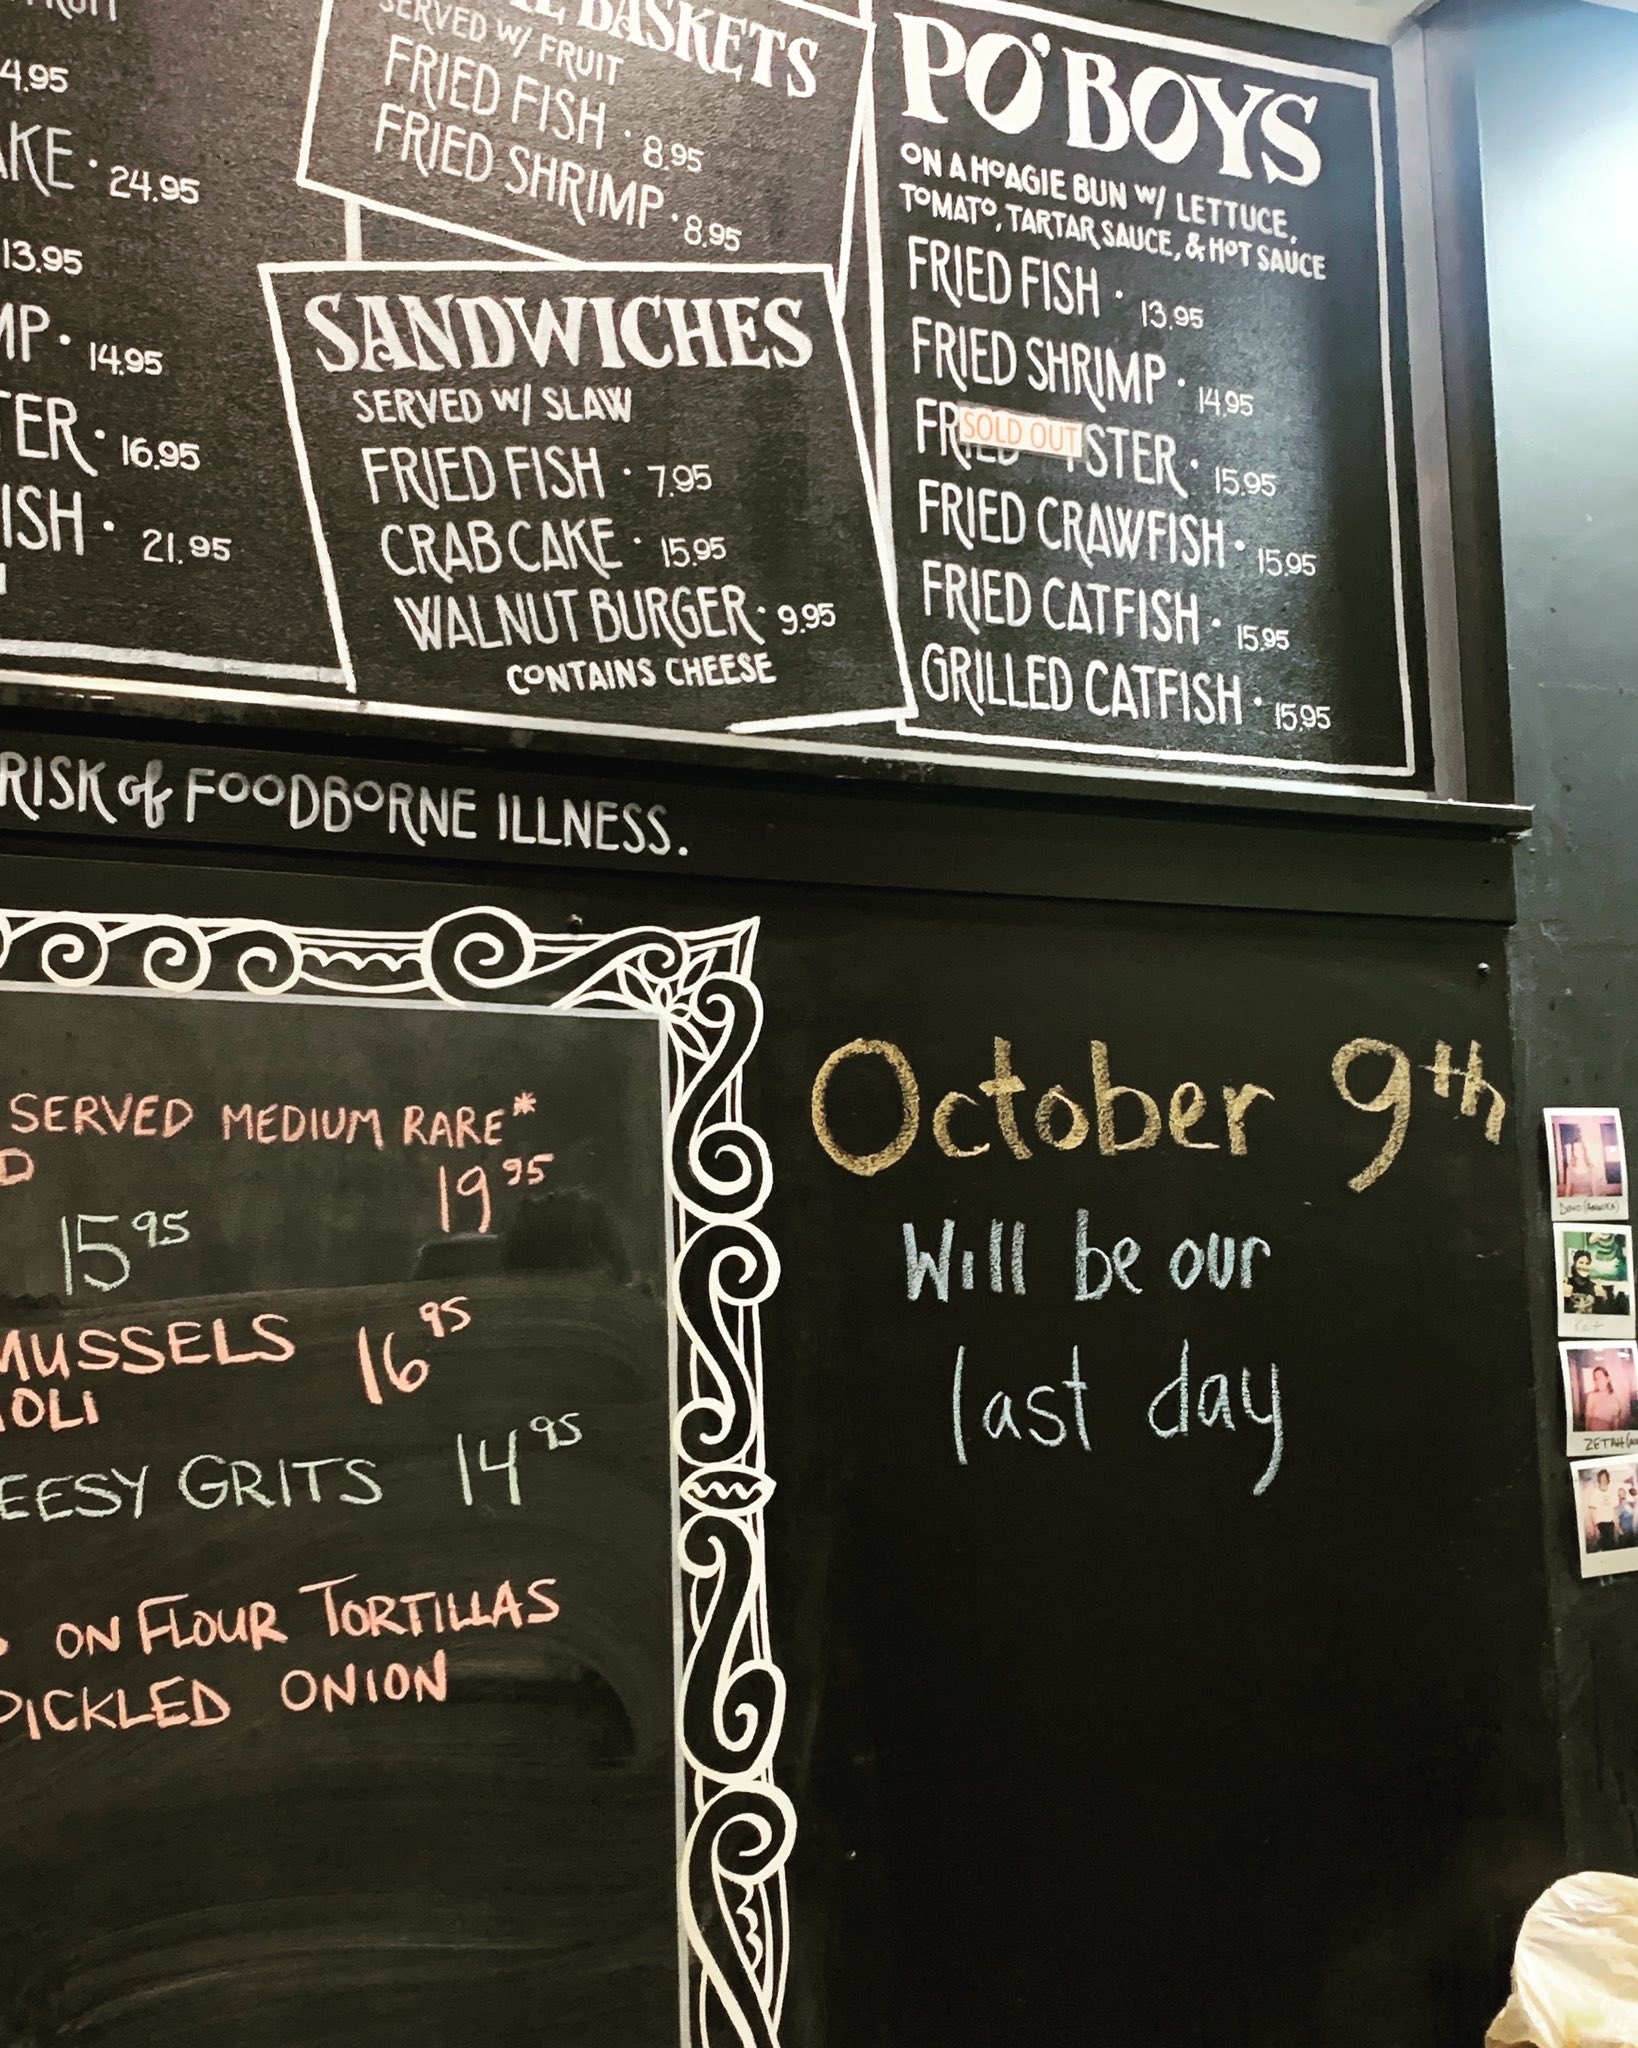 4.95
24.95
13.95
14.95
16.95
21.95
BASKETS
SERVED W/ FRUIT
FRIED FISH · 8.95
FRIED SHRIMP · 8.95
SANDWICHES
SERVED W/ SLAW
FRIED FISH · 7.95
CRAB CAKE · 15.95
WALNUT BURGER · 9.95
CONTAINS CHEESE
PO' BOYS
ON A HOAGIE BUN W/ LETTUCE,
TOMATO, TARTAR SAUCE, & HOT SAUCE
FRIED FISH · 13.95
FRIED SHRIMP · 14.95
SOLD OUT
15.95
FRIED CRAWFISH · 15.95
FRIED CATFISH · 15.95
GRILLED CATFISH · 15.95
RISK of FOODBORNE ILLNESS.
SERVED MEDIUM RARE*
19 95
15 95
MUSSELS 16 95
GRITS 14 95
ON FLOUR TORTILLAS
PICKLED ONION
October 9th
Will be our
last day